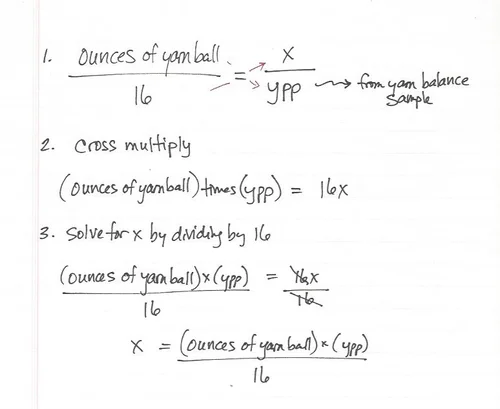 1. ounces of yarn ball / 16 = x / ypp → from yarn balance sample
2. cross multiply
(ounces of yarnball) times (ypp) = 16x
3. solve for x by dividing by 16
(ounces of yarn ball) × (ypp) / 16 = 16x / 16
x = (ounces of yarn ball) × (ypp) / 16